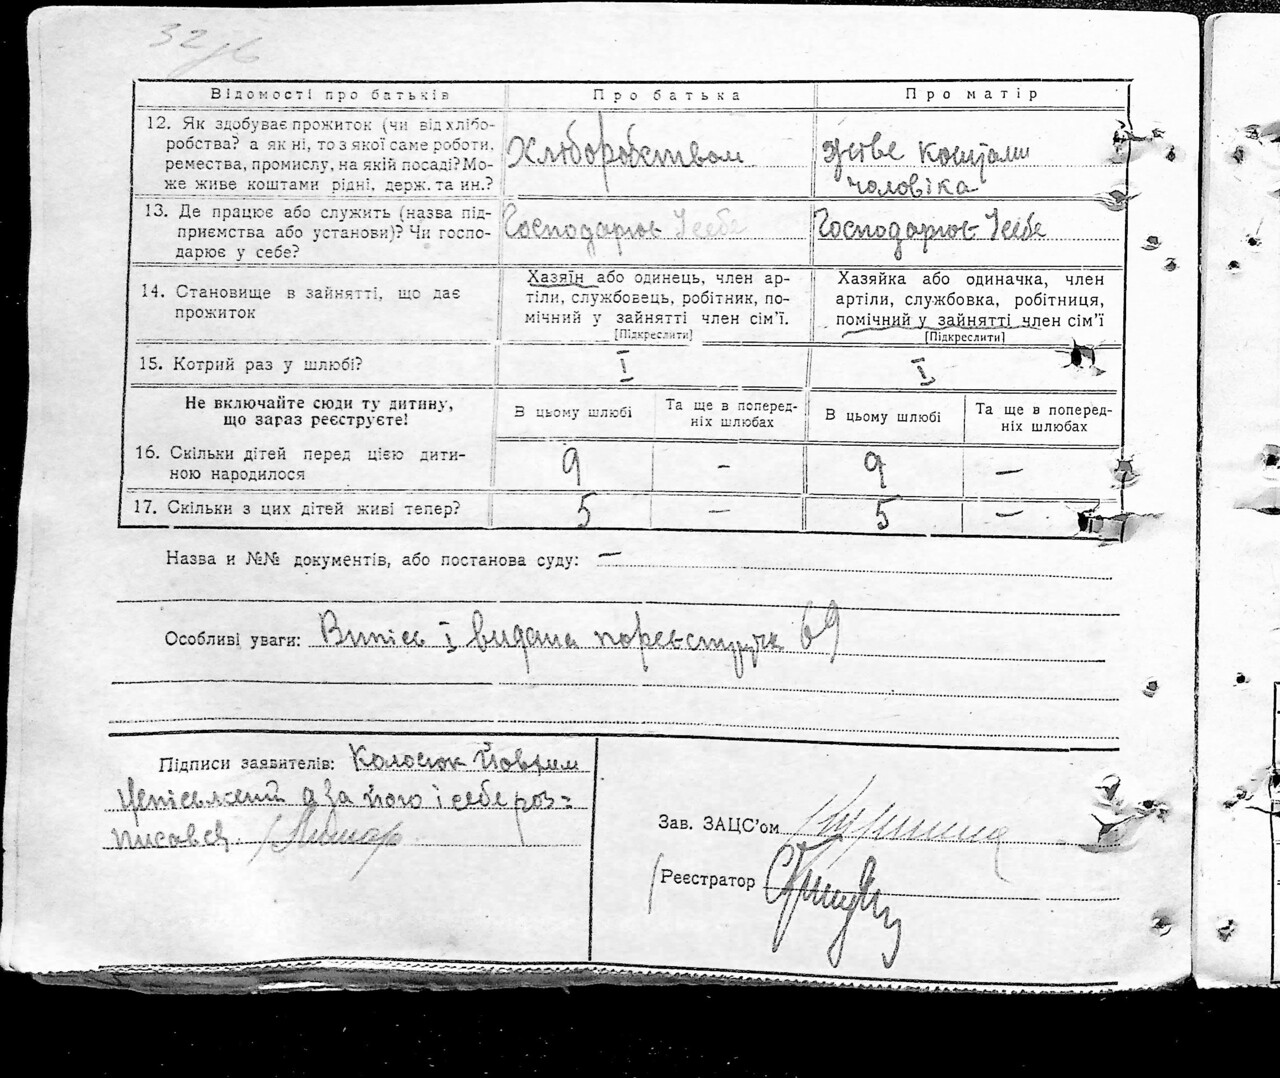 Відомості про батьків Про батька Про матір
12. Як здобуває прожиток (чи від хлібо-
робства? а як ні, то з якої саме роботи,
ремества, промислу, на якій посаді? Мо-
же живе коштами рідні, держ. та ин.?
Хліборобством
живе коштами
чоловіка
13. Де працює або служить (назва під-
приємства або установи)? Чи госпо-
дарює у себе?
Господарює У себе
Господарює У себе
14. Становище в зайнятті, що дає
прожиток
Хазяїн або одинець, член ар-
тіли, службовець, робітник, по-
мічний у зайнятті член сім'ї.
[Підкреслити]
Хазяйка або одиначка, член
артіли, службовка, робітниця,
помічний у зайнятті член сім'ї
[Підкреслити]
15. Котрий раз у шлюбі? I I
Не включайте сюди ту дитину,
що зараз реєструєте!
В цьому шлюбі
Та ще в поперед-
ніх шлюбах
В цьому шлюбі
Та ще в поперед-
ніх шлюбах
16. Скільки дітей перед цією дити-
ною народилося
9 – 9 –
17. Скільки з цих дітей живі тепер? 5 – 5 –
Назва и №№ документів, або постанова суду: –
Особливі уваги: Випись і видана 69
Підписи заявителів: Колосюк
а за його і себе роз=
писався
Зав. ЗАЦС'ом
Реєстратор